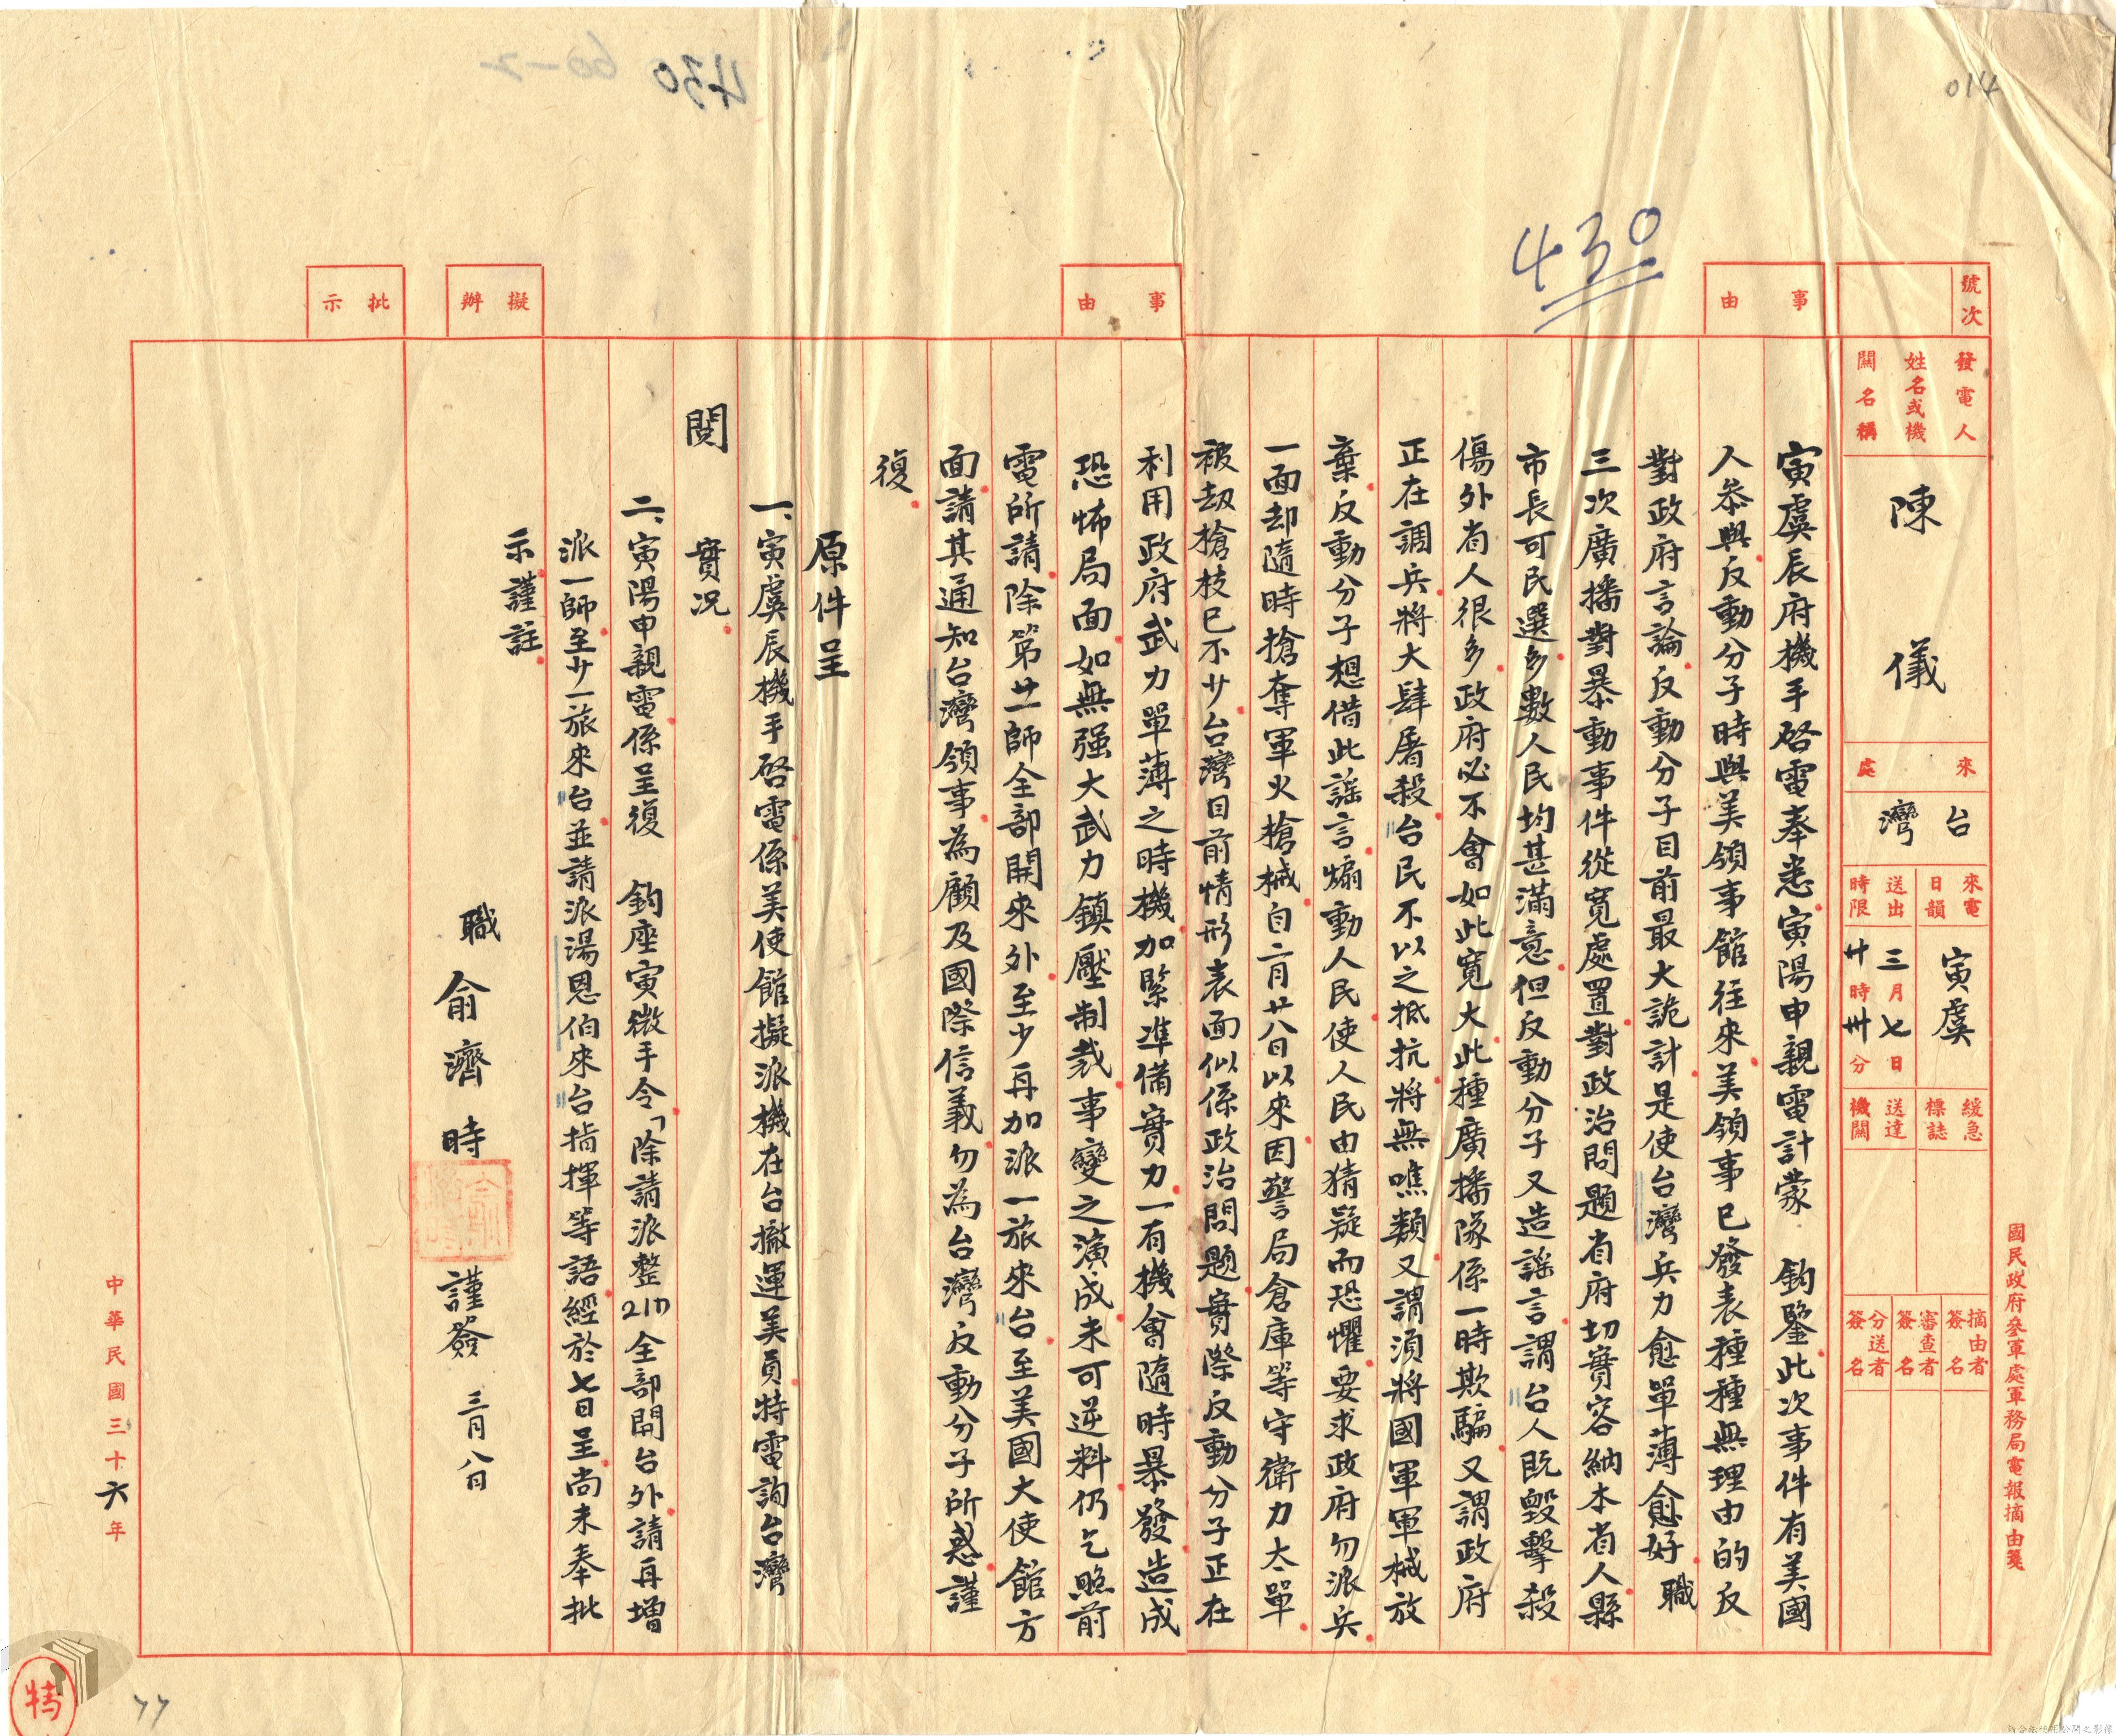 014
430 60-2
430
國民政府參軍處軍務局電報摘由箋
號次
發電人
姓名或機
關名稱
陳儀
來處
台灣
來電日韻
寅虞
送出時限
三月七日
廿時卅分
緩急標誌
送達機關
摘由者簽名
審查者簽名
分送者簽名
事由
寅虞辰府機手啓電奉悉寅陽申親電計蒙 鈞鑒此次事件有美國
人參與反動分子時與美領事館往來美領事已發表種種無理由的反
對政府言論反動分子目前最大詭計是使台灣兵力愈單薄愈好職
三次廣播對暴動事件從寬處置對政治問題省府切實容納本省人縣
市長可民選多數人民均甚滿意但反動分子又造謠言謂台人既毀擊殺
傷外省人很多政府必不會如此寬大此種廣播隊係一時欺騙又謂政府
正在調兵將大肆屠殺台民不以之抵抗將無噍類又謂須將國軍軍械放
棄反動分子想借此謠言煽動人民使人民由猜疑而恐懼要求政府勿派兵
一面却隨時搶奪軍火槍械自二月廿八日以來因警局倉庫等守衛力太單
被刼搶枝已不少台灣目前情形表面似係政治問題實際反動分子正在
事由
利用政府武力單薄之時機加緊準備實力一有機會隨時暴發造成
恐怖局面如無强大武力鎮壓制裁事變之演成未可逆料仍乞照前
電所請除第廿一師全部開來外至少再加派一旅來台至美國大使館方
面請其通知台灣領事為顧及國際信義勿為台灣反動分子所惑謹
復
原件呈
一、寅虞辰機手啓電係美使館擬派機在台撤運美員特電詢台灣
實况
閱
二、寅陽申親電係呈復 鈞座寅微手令「除請派整21D全部開台外請再增
派一師至少一旅來台並請派湯恩伯來台指揮等語經於七日呈尚未奉批
示謹註
擬辦
職俞濟時謹簽 三月八日
批示
中華民國三十六年
特
77